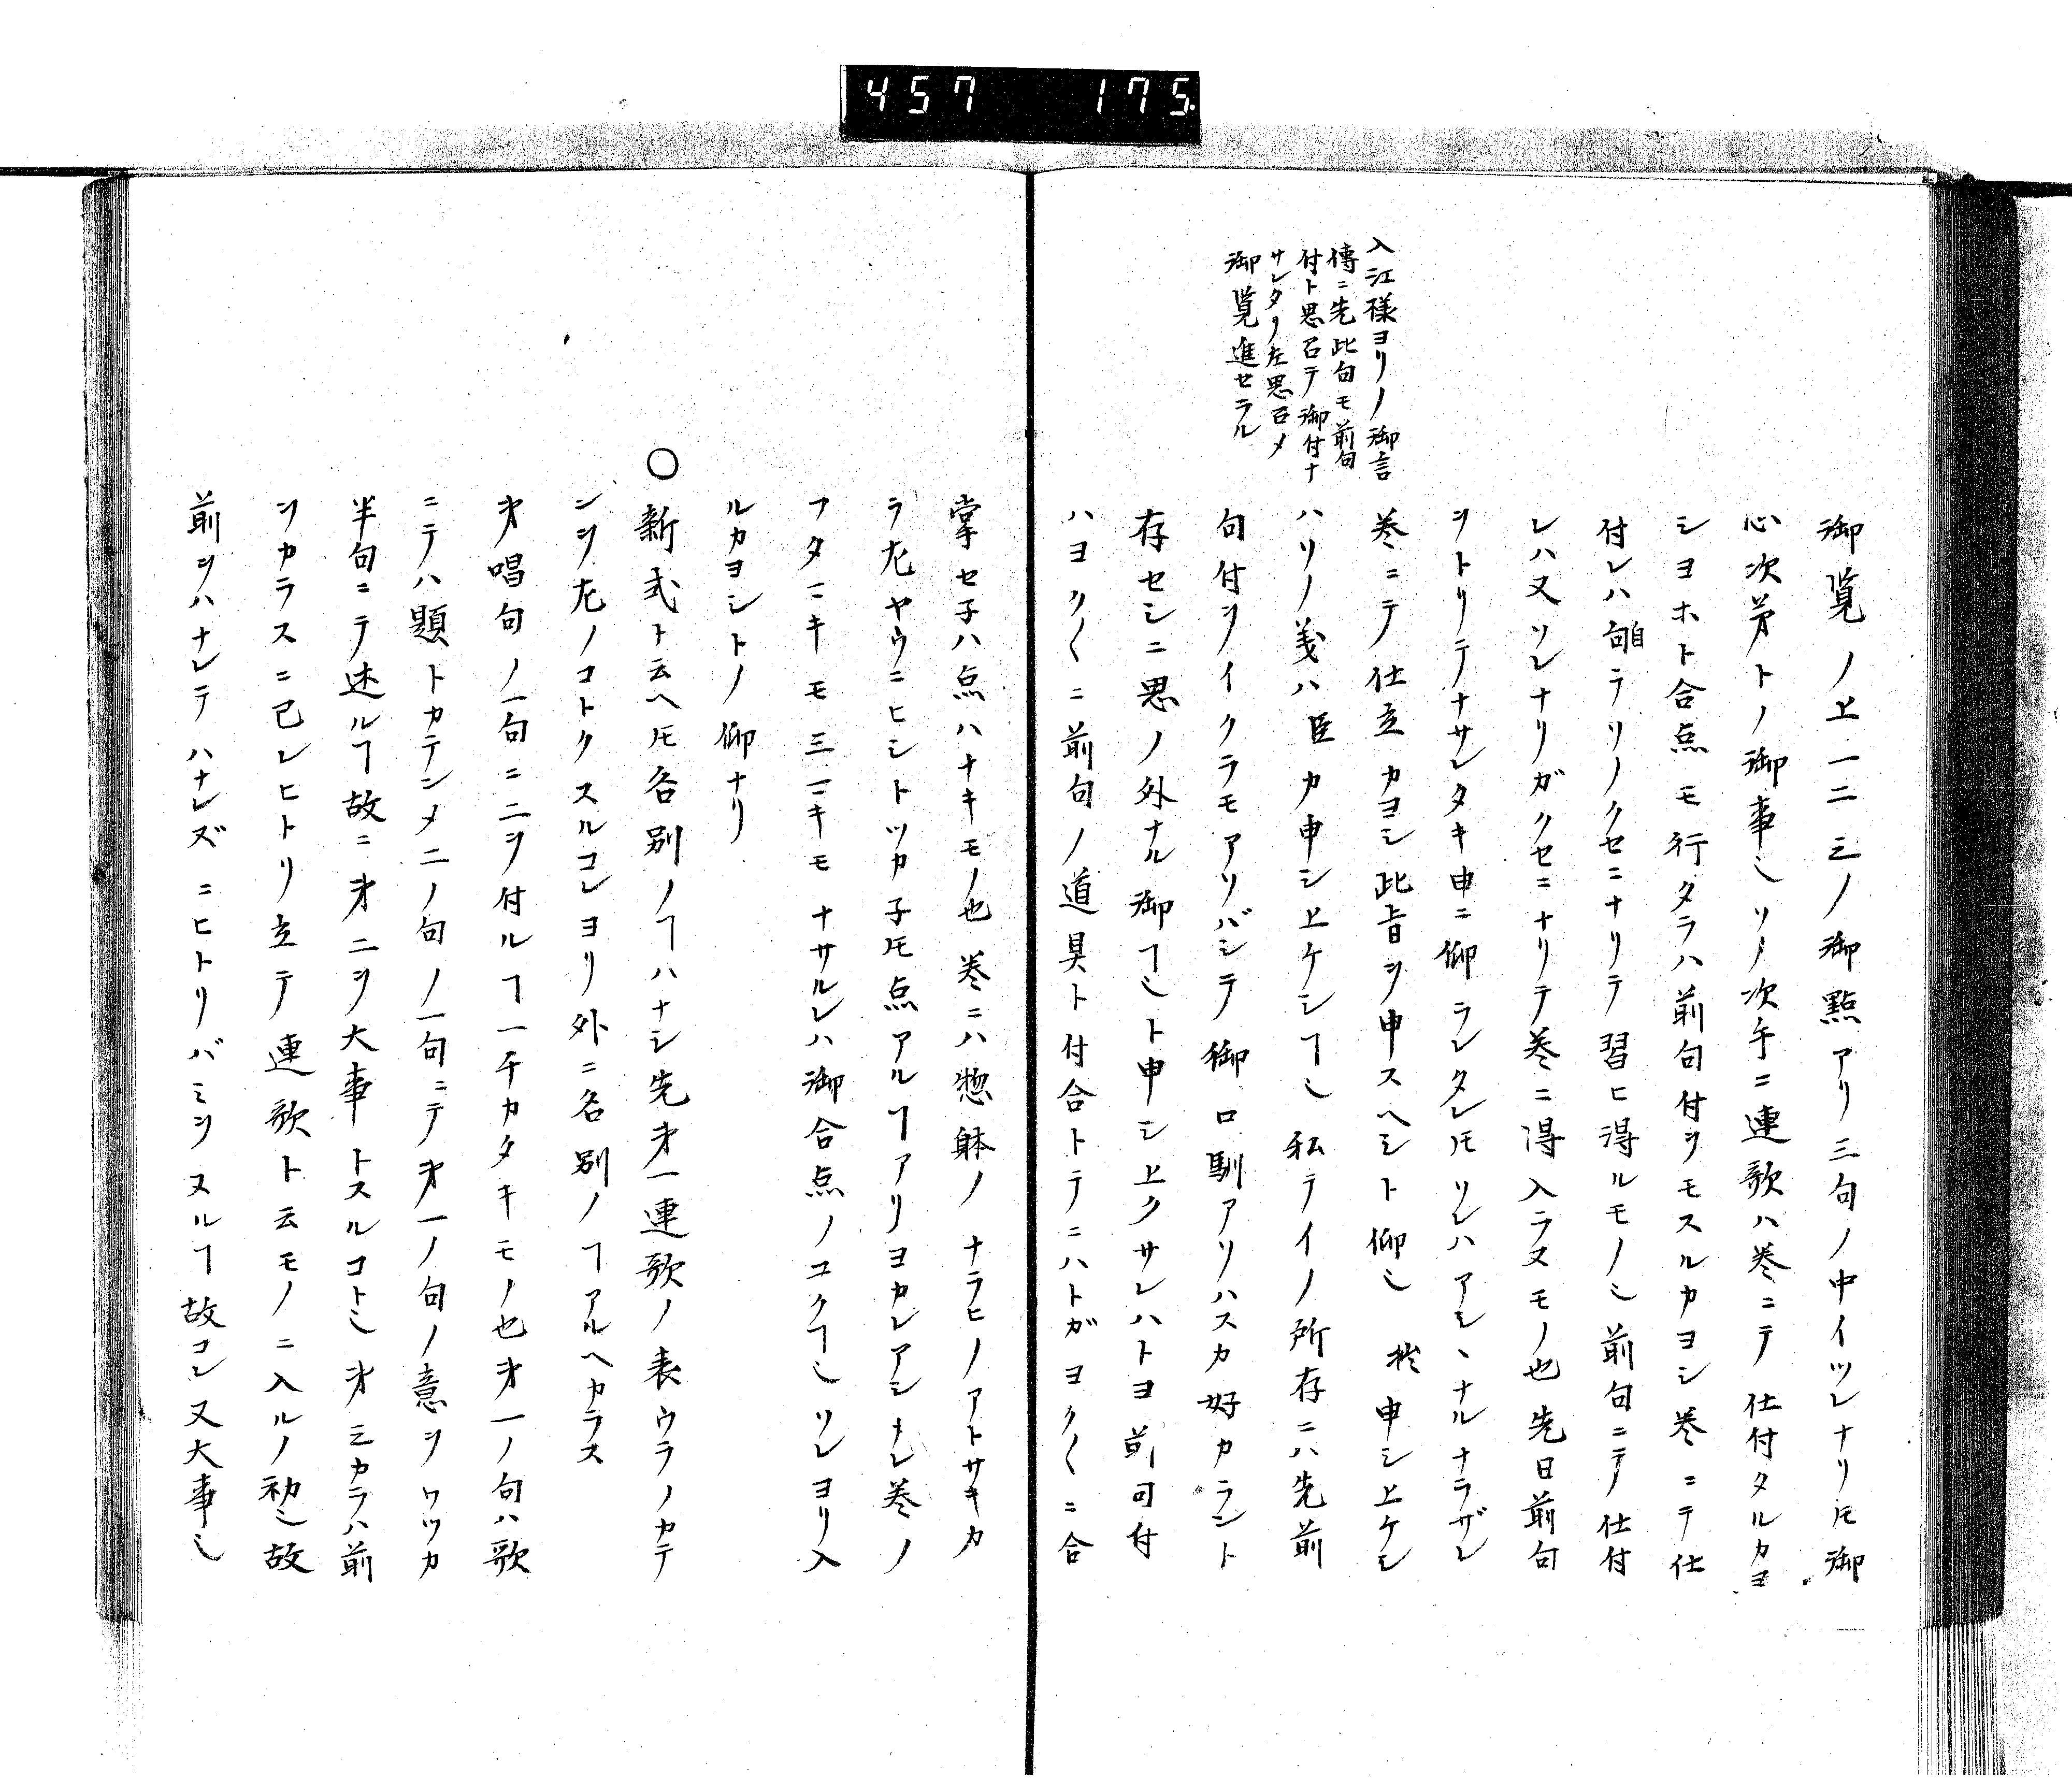 457 175.
御覧ノ上一二三ノ御點アリ三句ノ中イツレナリ𪜈御
心次第トノ御事乄ソノ次手ニ連歌ハ巻ニテ仕付タルカヨ
シヨホト合点モ行タラハ前句付ヲモスルカヨシ巻ニテ仕
付レハ自句ラリノクセニナリテ習ヒ得ルモノ乄前句ニテ仕付
レハ又ソレナリガクセニナリテ巻ニ得入ラヌモノ也先日前句
ヲトリテナサレタキ申ニ仰ラレタレ𪜈ソレハアシヽナルナラザレ
巻ニテノ仕立カヨシ此旨ヲ申スヘシト仰乄 拙申シ上ケシ
入江様ヨリノ御言
傳ニ先此句モ前句
付ト思召テ御付ナ
サレタリ左思召メ
御覧進セラル
ハリノ義ハ臣カ申シ上ケシヿ乄私テイノ所存ニハ先前
句付ヲイクラモアソバシテ御口馴アソハスカ好カラント
存セシニ思ノ外ナル御ヿ乄ト申シ上クサレハトヨ前句付
ハヨク〳〵ニ前句ノ道具ト付合トテニハトガヨク〳〵ニ合
掌セ子ハ点ハナキモノ也巻ニハ惣躰ノナラヒノアトサキカ
ラ尤ヤウニヒシトツカ子𪜈点アルヿアリヨカレアシナレ巻ノ
フタマキモ三マキモナサルレハ御合点ノユクヿ乄ソレヨリ入
ルカヨシトノ仰ナリ
〇新式ト云ヘ𪜈各別ノヿハナシ先㐧一連歌ノ表ウラノカテ
ンヲ尤ノコトクスルコレヨリ外ニ各別ノヿアルヘカラス
㐧唱句ノ一句ニ二ヲ付ルヿ一千カタキモノ也㐧一ノ句ハ歌
ニテハ題トカテンメ二ノ句ノ一句ニテ㐧一ノ句ノ意ヲワツカ
半句ニテ述ルヿ故ニ㐧二ヲ大事トスルコト乄㐧三カラハ前
ヲカラスニ己レヒトリ立テ連歌ト云モノニ入ルノ初乄故
前ヲハナレテハナレズニヒトリバミヲヌルヿ故コレ又大事乄